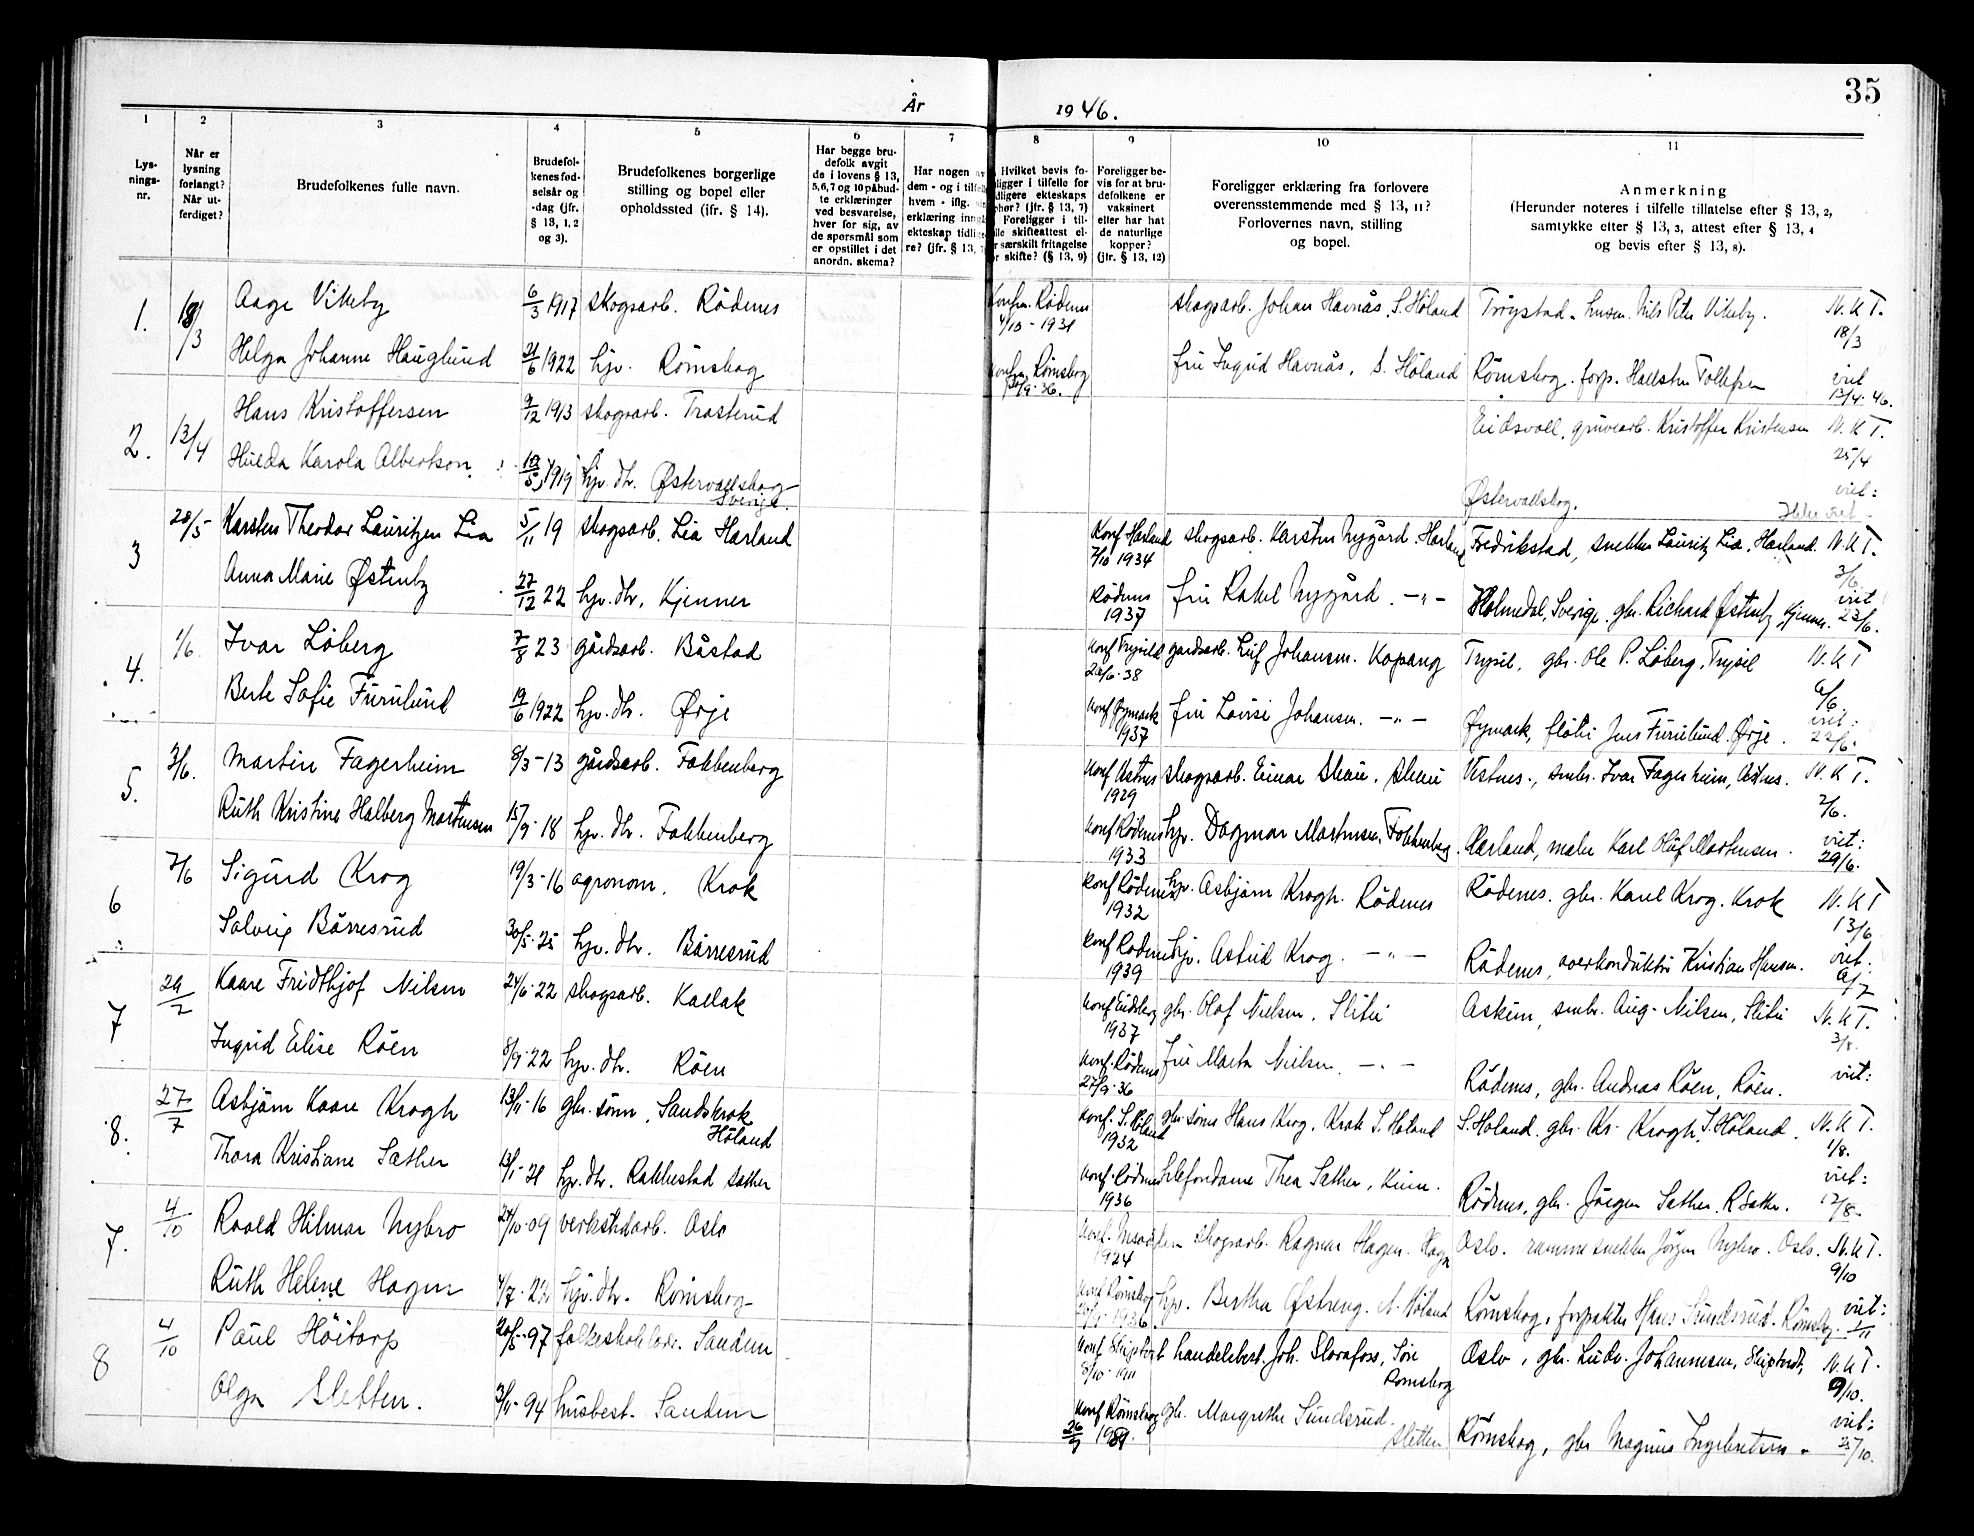 35
År 1946.
1 2 3 4 5 6 7 8 9 10 11
Lysnings-nr.
Når er lysning forlangt? Når utferdiget?
Brudefolkenes fulle navn.
Brudefolkenes fødselsår og -dag (jfr. § 13, 1, 2 og 3).
Brudefolkenes borgerlige stilling og bopel eller opholdssted (ifr. § 14).
Har begge brudefolk avgit de i lovens § 13, 5, 6, 7 og 10 påbudte erklæringer ved besvarelse, hver for sig, av de spørsmål som er opstillet i det anordn. skema?
Har nogen av dem - og i tilfelle hvem - iflg. erklæring inngått ekteskap tidligere? (jfr. § 13,
Hvilket bevis foreligger i tilfelle for tidligere ekteskaps ophør? (jfr. § 13, 7) Foreligger i tilfelle skifteattest eller særskilt fritagelse for skifte? (§ 13, 9)
Foreligger bevis for at brudefolkene er vaksinert eller har hat de naturlige kopper? (jfr. § 13, 12)
Foreligger erklæring fra forlovere overensstemmende med § 13, 11? Forlovernes navn, stilling og bopel.
Anmerkning (Herunder noteres i tilfelle tillatelse efter § 13, 2, samtykke efter § 13, 3, attest efter § 13, 4 og bevis efter § 13, 8).
1. 18/3 Aage Vikeby 6/3 1917 skogsarb. Rödenes Konfm. Rödenes 4/10 - 1931 skogsarb. Johan Havnås, S. Höland Trögstad. husm. Nils Peter Vikeby. N.K.T. 18/3
Helga Johanne Hauglund 21/6 1922 hjv. Römskog Konfm. Römskog /9-36. fru Ingrid Havnås, S. Höland Römskog. forp. Hallsten Tollefsen viet 13/4-46.
2. 13/4 Hans Kristoffersen 9/12 1913 skogsarb. Trosterud Eidsvoll, gruvearb. Kristoffer Kristensen N.K.T. 25/4
Hulda Karola Albertson 10/5 1919 hjv. dtr. Østervallskog Sverige. Østervallskog. viet: Ikke viet
3 28/5 Karsten Theodor Lauritzen Lia 5/11 19 skogsarb. Lia Harland Konf Harland 7/10 1934 skogsarb. Karsten Nygård. Harland Fredrikstad, snekker Lauritz Lia, Harland. N.K.T. 3/6.
Anna Marie Østenby 27/12 22 hjv. dtr. Kjenner Rödenes 1937 fru Rakel Nygård. -"- Holmedal, Sverige. gbr. Richard Østenby Kjenner. viet 23/6.
4. 1/6. Ivar Löberg 7/8 23 gårdsarb. Båstad Konf Trysil 26/6-38 gardsarb. Leif Johansen. Kopang Trysil, gbr. Ole P. Löberg, Trysil N.K.T 6/6.
Berte Sofie Furulund 19/6 1922 hjv. dtr. Ørje Konf Øymark 1937 fru Lovise Johansen. -"- Øymark, fløter Jens Furulund. Ørje. viet: 22/6.
5. 3/6. Martin Fagerheim 8/3-13 gårdsarb. Fokkenberg Konf Vestnes 1929 skogsarb. Einar Skau. Vestnes., smbr. Ivar Fagerheim, Vestnes. N.K.T. 7/6.
Ruth Kristine Halberg Mortensen 15/9-18 hjv. dtr. Fokkenberg Konf Rödenes 1933 hjv. Dagmar Mortensen, Fokkenberg. Harland, maler Karl Oluf Mortensen. viet: 29/6.
6 7/6 Sigurd Krog 19/3-16 agronom. Krok Konf Rödenes 1932 hjv. Asbjörn Krogh. Rödenes Rödenes. gbr. Karel Krog. Krok N.K.T 13/6
Solveig Börresrud 30/5-25 hjv. dtr. Börresrud Konf Rödenes 1939 hjv. Astrid Krog. -"- Rödenes, overkonduktör Kristian Hansen. viet: 6/7
7 29/7 Kaare Fridthjof Nilsen 24/6-22 skogsarb. Kallak Konf Eidsberg 1937 gbr. Olaf Nielsen. Slitu Askim, smbr. Aug. Nilsen, Slitu N.K.T. 3/8.
Ingrid Elise Röen 8/9-22 hjv. dtr. Röen Konf. Rödenes 27/9-36 fru Marta Nielsen. -"- Rödenes, gbr. Andreas Röen, Röen. viet:
8. 27/7 Asbjörn Kaare Krogh 13/11-16 gbr. sönn, Sandskrok Höland Konf. S. Höland 1932 gbr söns Hans Krog, Krok S. Höland S. Höland. gbr. Kr. Krogh, S. Höland. N.K.T. 1/8.
Thora Kristiane Sæther 13/1-21 hjv. dtr. Rakkestad Sæther Konf. Rödenes 1936 telefondame Thea Sæther, Rödenes, gbr. Jörgen Sæther. R Sæther. viet: 12/8.
7. 4/10 Roald Hilmar Nybro 24/10-09 verkstedarb. Oslo Konf. 1924 skogsarb. Ragnar Hagen. Oslo. rammesnekker Jörgen Nybro. Oslo. N.K.T. 9/10
Ruth Helene Hagen 4/7-2 hjv. dtr. Römskog Konf Römskog 1936 hjv. Bertha Østreng. N. Höland Römskog, forpakter Hans Sundsrud. Römskog. viet: 1/11
8 4/10 Paul Höitorp 20/5-97 folkeskolelær. Sandem Konf Skiptvedt 8/10-1911 handelsbest. Joh. Slorafoss, Söre Römskog Oslo, gbr. Ludv. Johannesen, Skiptvedt, N.K.T. 9/10.
Olga Sletten. 3/11-94 husbest. Sandem Konf Römskog 26/9 19 gbr. Margrethe Sundsrud. Sletten Römskog, gbr Magnus Ingebretsen. viet: 25/10.